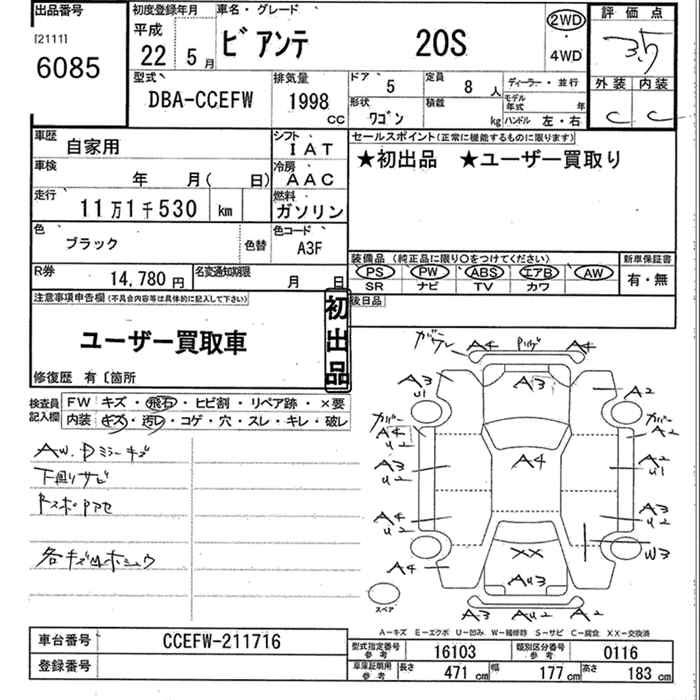 出品番号
[2111]
6085
初度登録年月
平成 22 5月
車名・グレード
ビアンテ 20S
2WD
・
4WD
評価点
3.5
外装 内装
C C
型式
DBA-CCEFW
排気量
1998 CC
ドア 5
定員 8 人
形状 ワゴン
積載 kg
ディーラー・並行
モデル年式 年
ハンドル 左・右
車歴 自家用
シフト IAT
車検 年 月( 日)
冷房 AAC
走行 11万1千530 km
燃料 ガソリン
色 ブラック
色替
色コード A3F
R券 14,780円
名変通知期限 月 日
セールスポイント(正常に機能するものに限ります)
★初出品 ★ユーザー買取り
装備品 (純正品に限り○をつけてください)
新車保証書
PS PW ABS エアB AW
SR ナビ TV カワ
有・無
後日品
注意事項申告欄(不具合内容等は具体的に記入して下さい)
ユーザー買取車
初出品
修復歴 有〔箇所
検査員記入欄
FW キズ・飛石・ヒビ割・リペア跡・×要
内装 キズ・汚レ・コゲ・穴・スレ・キレ・破レ
AW.Dミラーキズ
下廻りサビ
各キズ凹ホシュウ
A4 A4
A3 U1
A3
A2
A4 U2
A2 U2
A3 U2
A4
A2 U1
A4 U2
A3 U2
A4
XX
W3
AU3
スペア
A3 AU2 A2
A-キズ E-エクボ U-凹み W-補修跡 S-サビ C-腐食 XX-交換済
車台番号 CCEFW-211716
登録番号
型式指定番号 参考 16103
類別区分番号 参考 0116
車庫証明用 参考
長さ 471 cm
幅 177 cm
高さ 183 cm